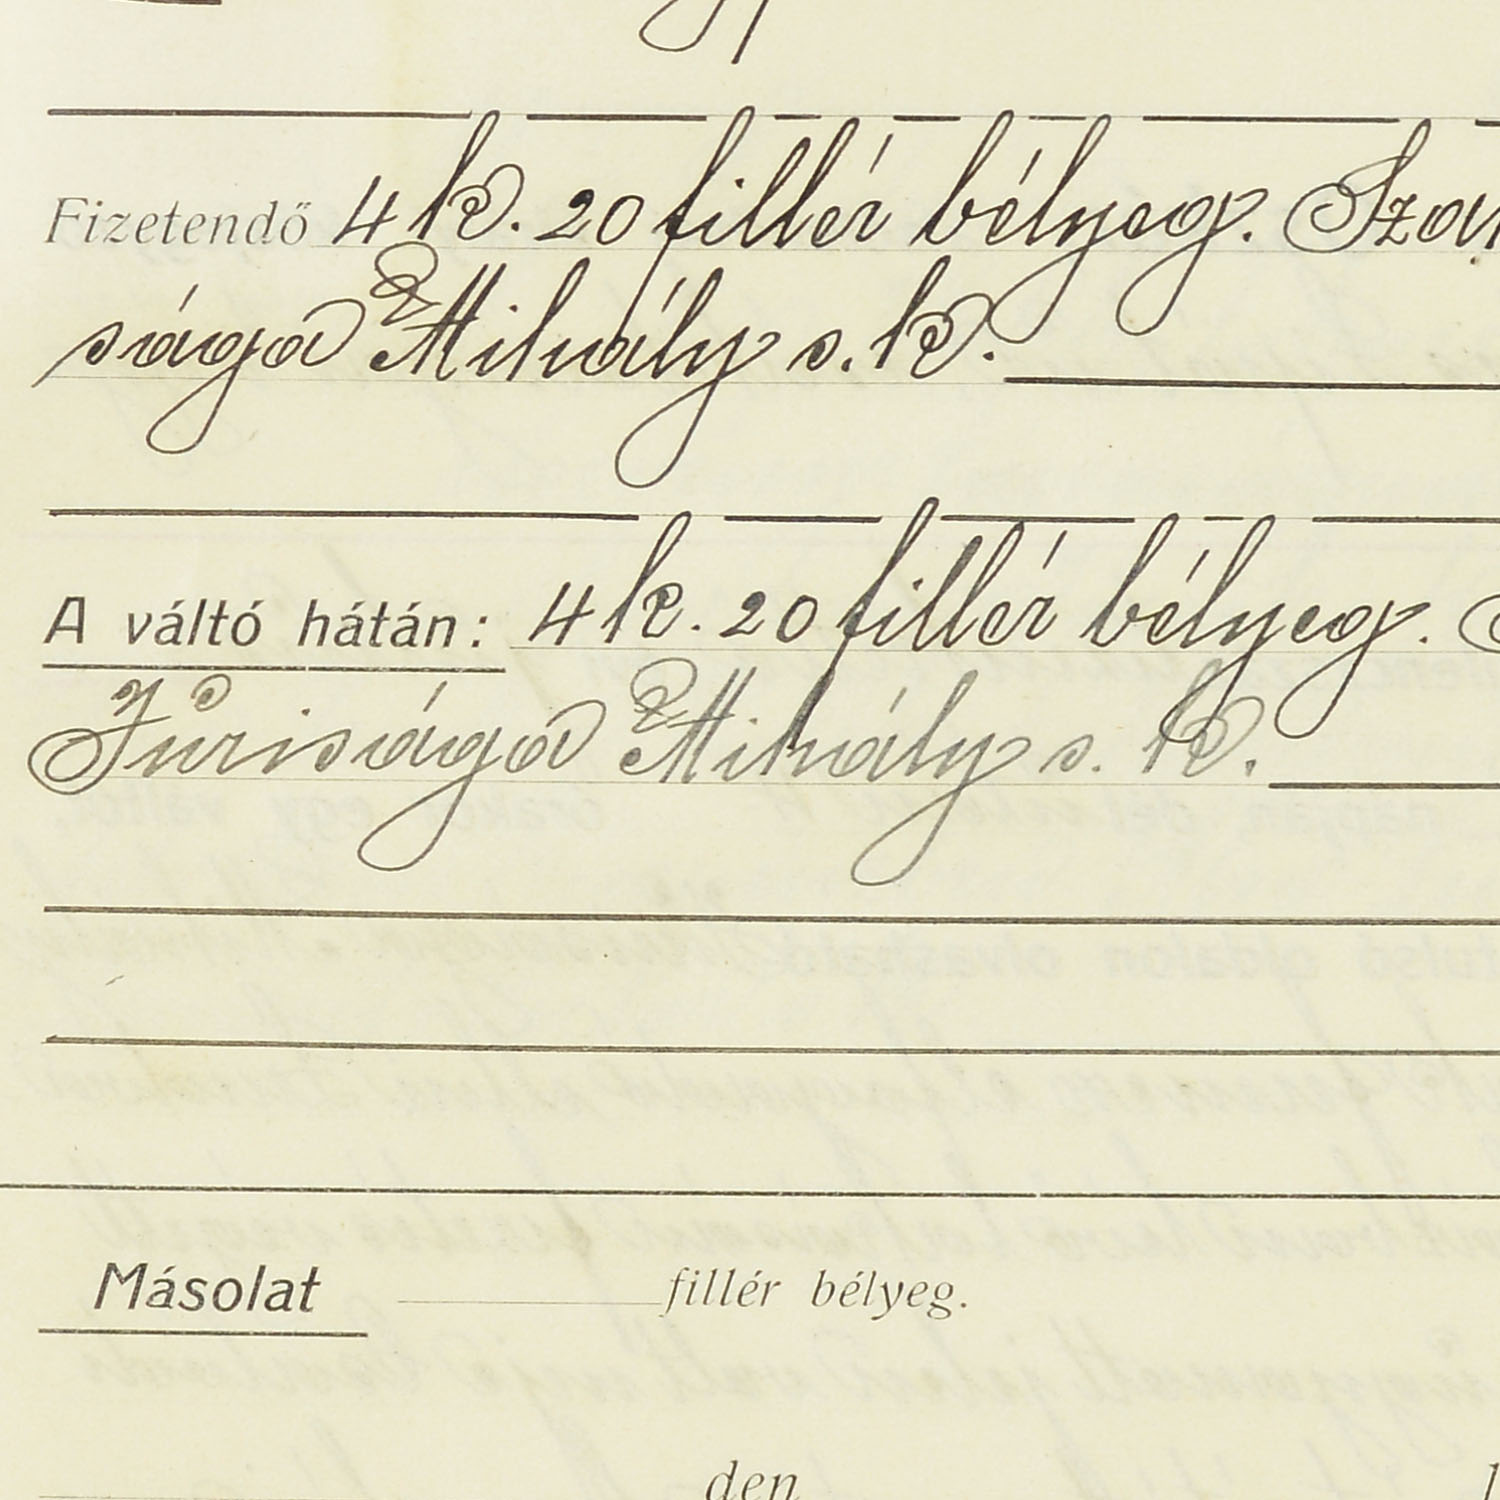 Fizetendő 4 k. 20 fillér bélyeg.
sága Mihály s. k.
A váltó hátán: 4 k. 20 fillér bélyeg.
Jurisága Mihály s. k.
Másolat fillér bélyeg.
den